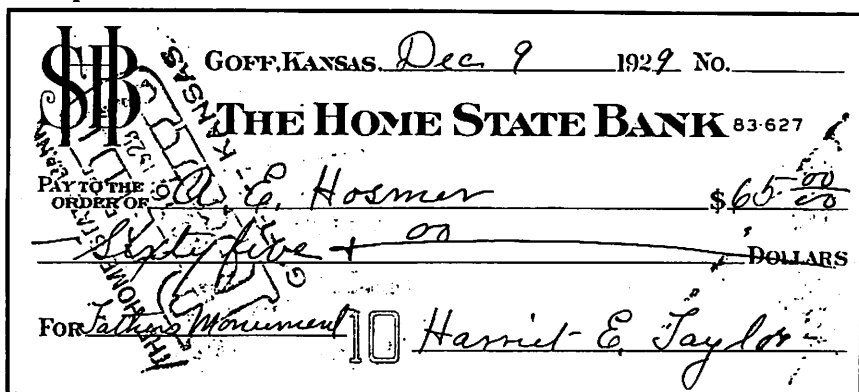 HSB
GOFF, KANSAS, Dec 9 1929 NO.
THE HOME STATE BANK 83-627
PAY TO THE
ORDER OF A. E. Hosmer $65 00/00
Sixty five + 00 DOLLARS
FOR Fathers Monument 10 Harriet E. Taylor
THE HOME STATE BANK
GOFF, KANSAS.